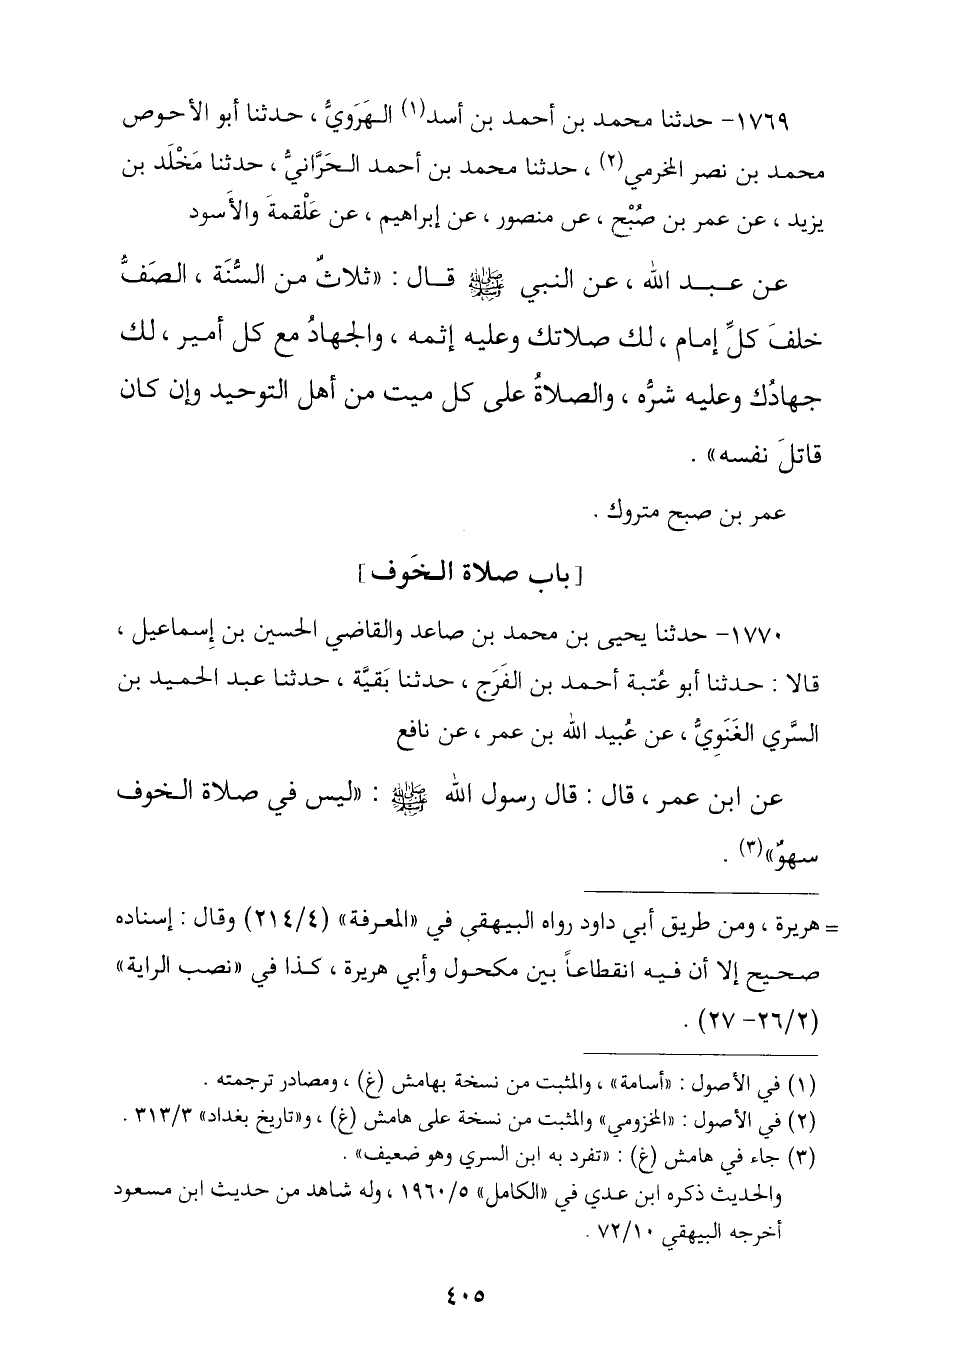 ١٧٦٩- حدثنا محمد بن أحمد بن أسد(١) الهَرَويُّ ، حدثنا أبو الأحوص
محمد بن نصر المخرمي(٢) ، حدثنا محمد بن أحمد الحَرَّانيُّ ، حدثنا مَخْلَد بن
يزيد ، عن عمر بن صُبْح ، عن منصور ، عن إبراهيم ، عن عَلْقمةَ والأَسود
عن عبد الله ، عن النبي ﷺ قال : «ثلاثٌ من السُّنَة ، الصَفُّ
خلفَ كلِّ إمام ، لك صلاتك وعليه إثمه ، والجهادُ مع كل أمير ، لك
جهادُك وعليه شرُّه ، والصلاةُ على كل ميت من أهل التوحيد وإن كان
قاتلَ نفسه» .
عمر بن صبح متروك .
[باب صلاة الخَوف]
١٧٧٠- حدثنا يحيى بن محمد بن صاعد والقاضي الحسين بن إِسماعيل ،
قالا : حدثنا أبو عُتبة أحمد بن الفَرَج ، حدثنا بَقيَّة ، حدثنا عبد الحميد بن
السَّري الغَنَوِيُّ ، عن عُبيد الله بن عمر ، عن نافع
عن ابن عمر ، قال : قال رسول الله ﷺ : «ليس في صلاة الخوف
سهوٌ»(٣) .
= هريرة ، ومن طريق أبي داود رواه البيهقي في «المعرفة» (٢١٤/٤) وقال : إسناده
صحيح إلا أن فيه انقطاعاً بين مكحول وأبي هريرة ، كذا في «نصب الراية»
(٢٦/٢- ٢٧) .
(١) في الأصول : «أسامة» ، والمثبت من نسخة بهامش (غ) ، ومصادر ترجمته .
(٢) في الأصول : «المخزومي» والمثبت من نسخة على هامش (غ) ، و«تاريخ بغداد» ٣١٣/٣ .
(٣) جاء في هامش (غ) : «تفرد به ابن السري وهو ضعيف» .
والحديث ذكره ابن عدي في «الكامل» ١٩٦٠/٥ ، وله شاهد من حديث ابن مسعود
أخرجه البيهقي ٧٢/١٠ .
٤٠٥